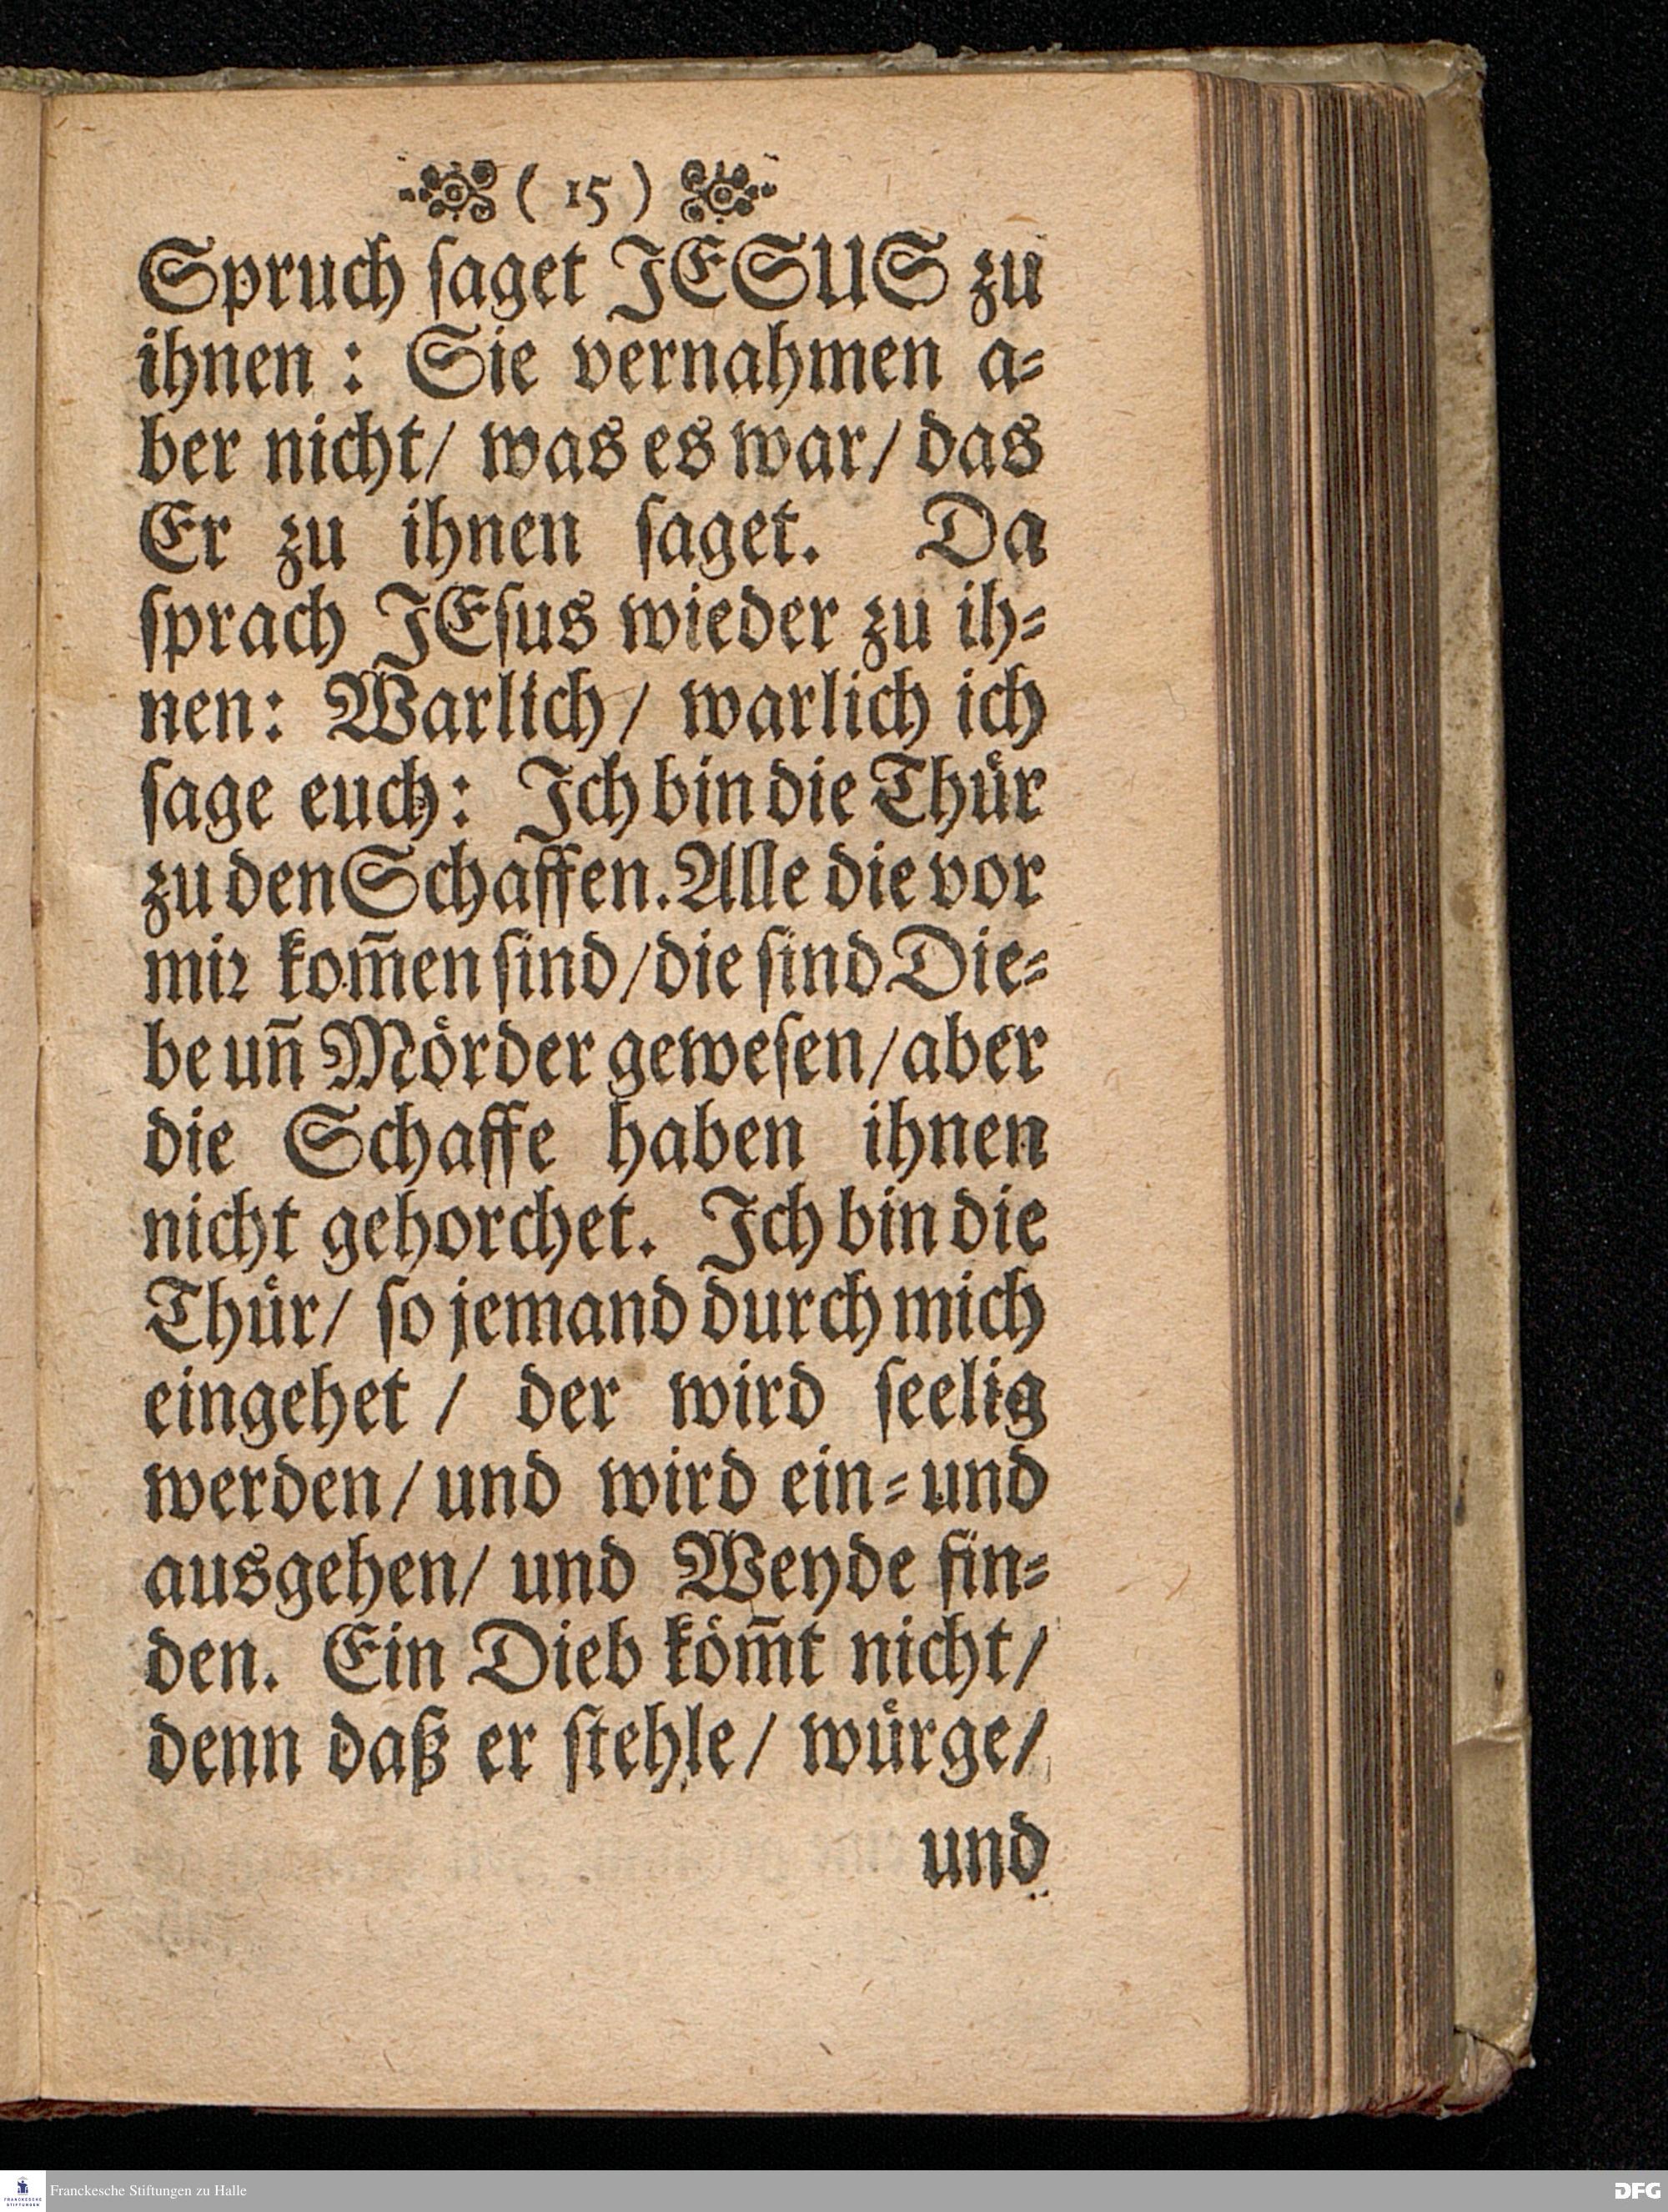 ( 15 )
Spruch ſaget JESUS zu
ihnen : Sie vernahmen a⸗
ber nicht/ was es war/ das
Er zu ihnen ſaget. Da
ſprach JEſus wieder zu ih⸗
nen: Warlich/ warlich ich
ſage euch: Ich bin die Thuͤr
zu den Schaffen. Alle die vor
miꝛ kom̃en ſind/ die ſind Die⸗
be un̄ Moͤrder geweſen/ aber
die Schaffe haben ihnen
nicht gehorchet. Ich bin die
Thuͤr/ ſo jemand durch mich
eingehet / der wird ſeelig
werden/ und wird ein⸗ und
ausgehen/ und Weyde fin⸗
den. Ein Dieb koͤm̃t nicht/
denn daß er ſtehle/ wuͤrge/
und
Franckesche Stiftungen zu Halle
FRANCKESCHE
STIFTUNGEN
DFG